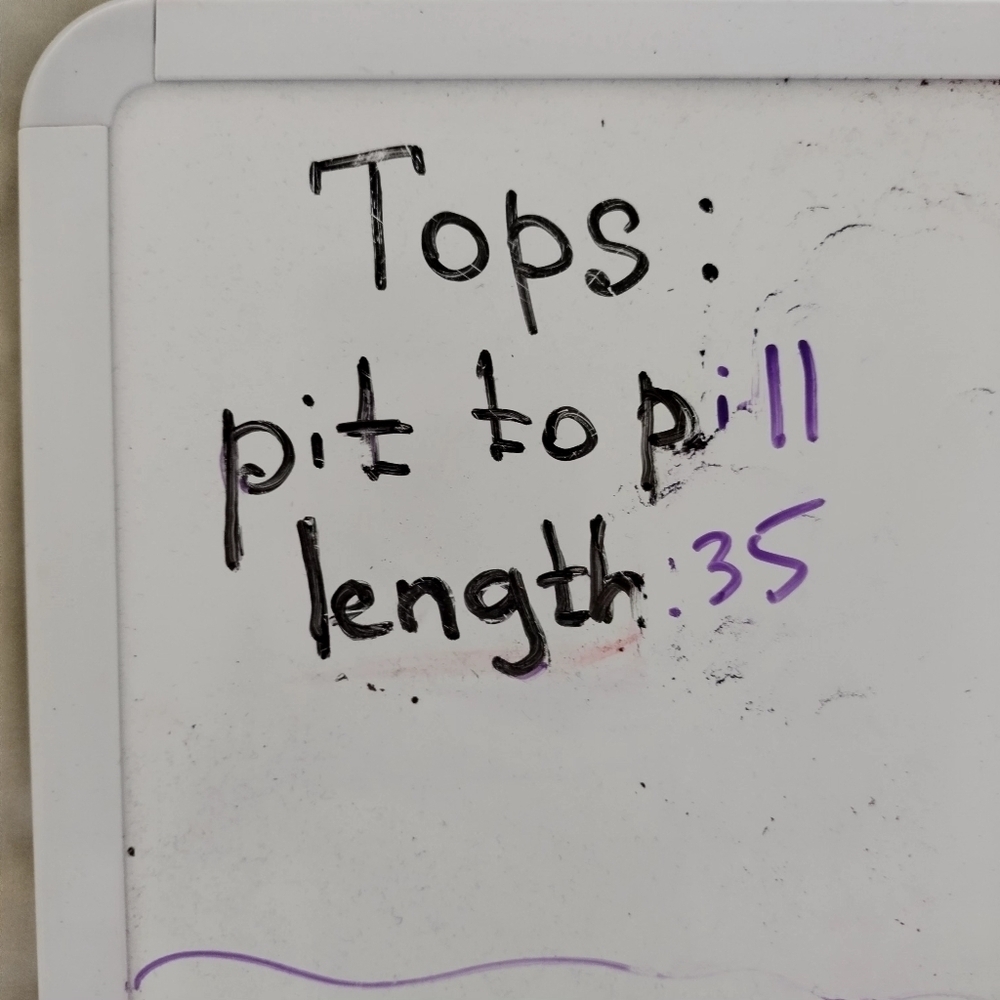 Tops:
pit to p:11
length:35